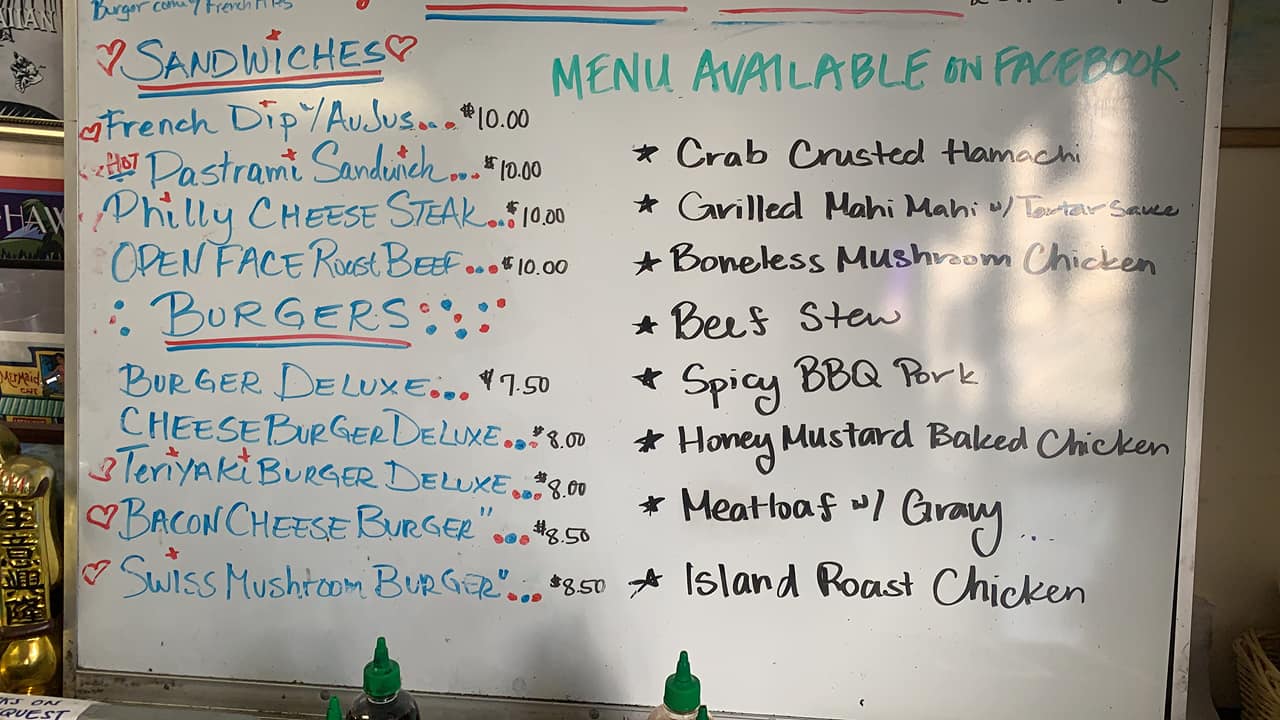 Burger come w/ French Fries
SANDWICHES
French Dip w/ AuJus... $10.00
HOT Pastrami Sandwich... $10.00
Philly CHEESE STEAK... $10.00
OPEN FACE Roast BEEF... $10.00
BURGERS
BURGER DELUXE... $7.50
CHEESE BURGER DELUXE... $8.00
TERiYAKi BURGER DELUXE... $8.00
BACON CHEESE BURGER" ... $8.50
SWiSS Mushroom BURGER" ... $8.50
MENU AVAILABLE ON FACEBOOK
★ Crab Crusted Hamachi
★ Grilled Mahi Mahi w/ Tartar Sauce
★ Boneless Mushroom Chicken
★ Beef Stew
★ Spicy BBQ Pork
★ Honey Mustard Baked Chicken
★ Meatloaf w/ Gravy ...
★ Island Roast Chicken
MERMAID
CAFE
生意興隆
ON
QUEST